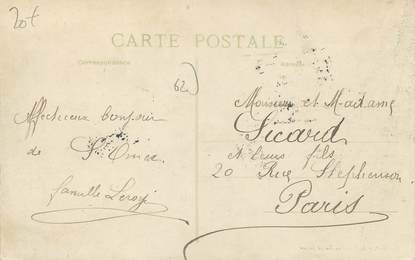 20f
CARTE POSTALE
Correspondance
62
Affectueux bonjour
de St Omer
famille Leroy
Monsieur et Madame
Sicard
et leurs fils
20 Rue Stephenson
Paris